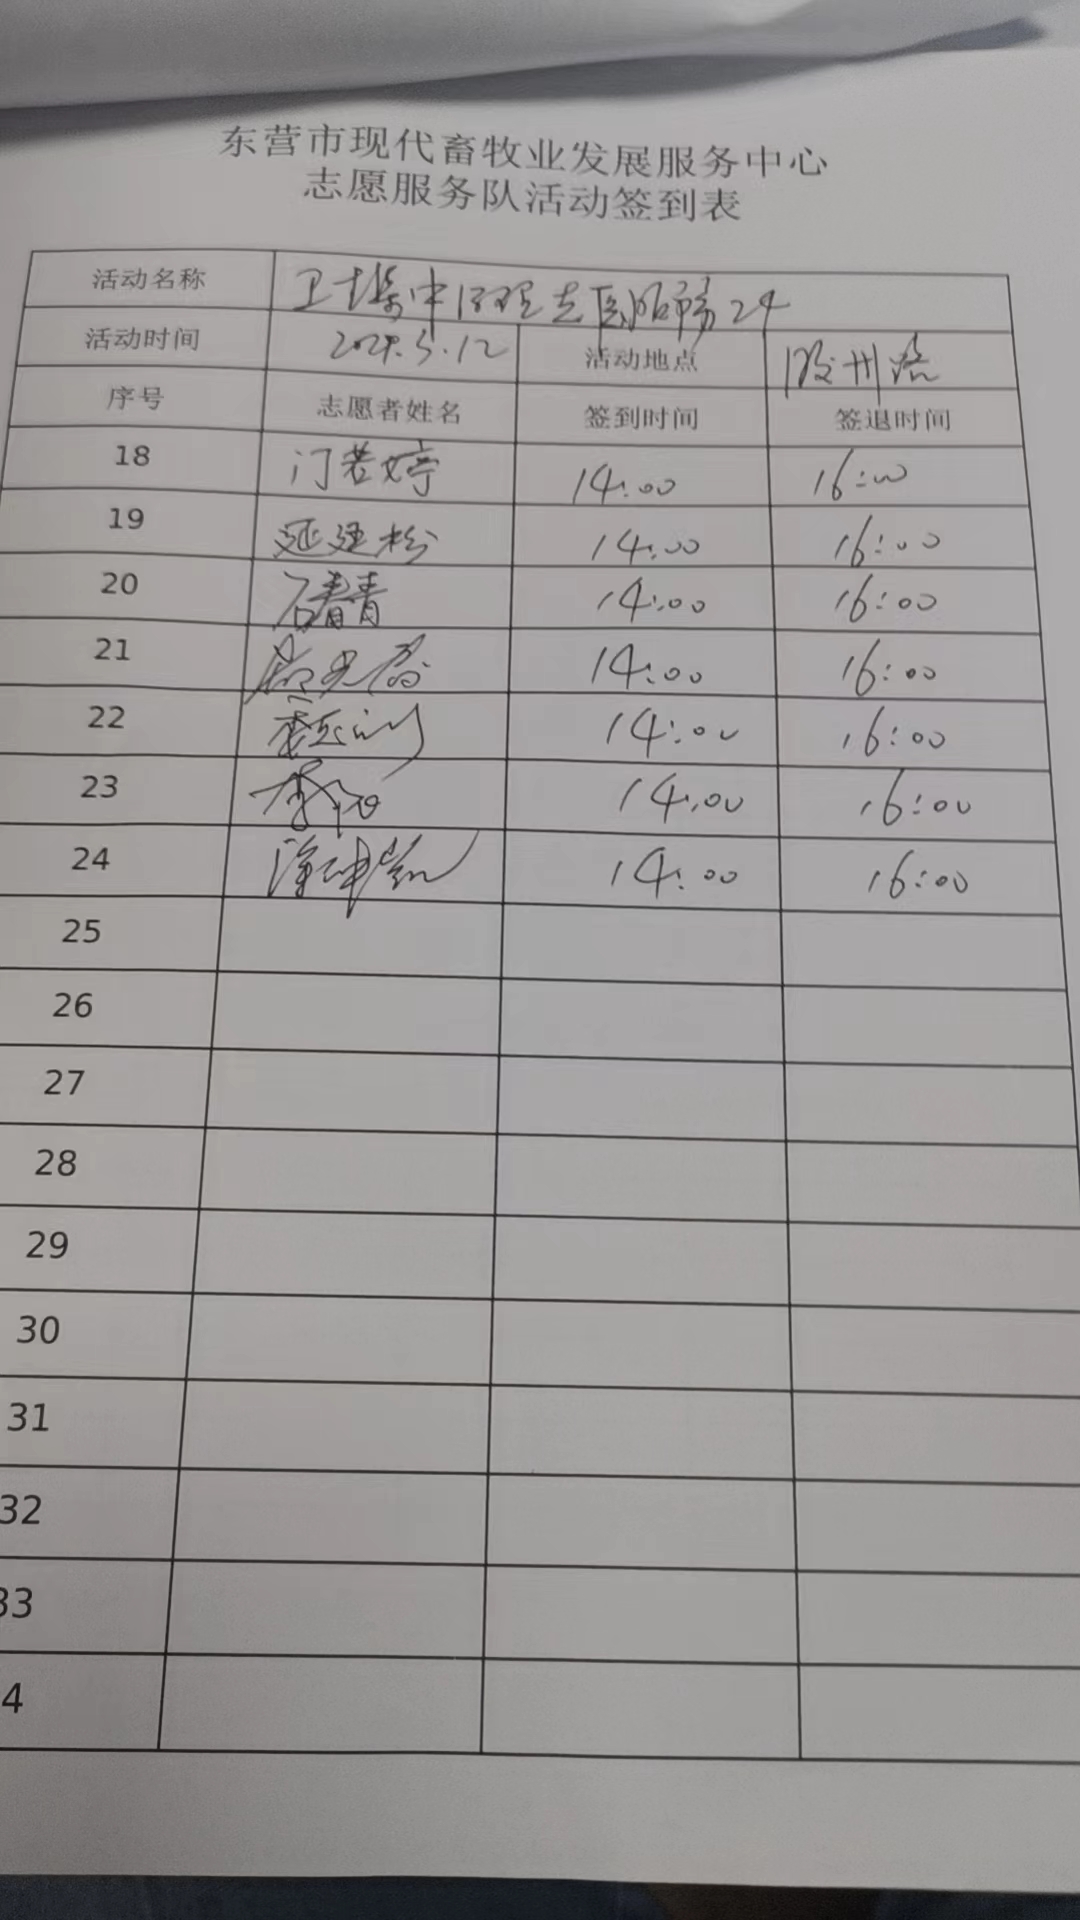 东营市现代畜牧业发展服务中心
志愿服务队活动签到表
活动名称 卫 集中 24
活动时间 5.12 活动地点 胶州路
序号 志愿者姓名 签到时间 签退时间
18 门若婷 14:00 16:00
19 延建松 14:00 16:00
20 石春青 14:00 16:00
21 14:00 16:00
22 14:00 16:00
23 李 14:00 16:00
24 14:00 16:00
25
26
27
28
29
30
31
32
33
4